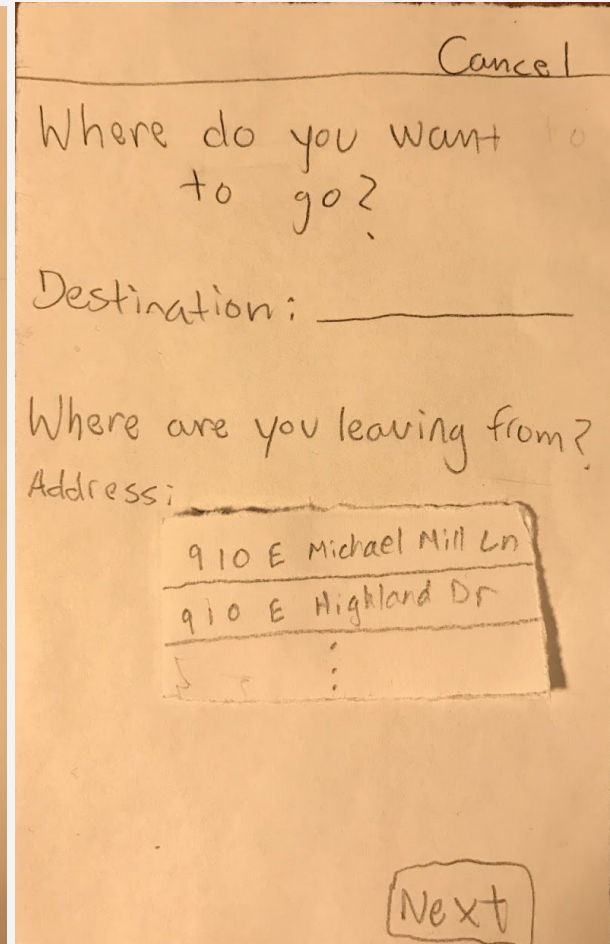 Cancel
Where do you want
to go?
Destination:
Where are you leaving from?
Address:
910 E Michael Mill Ln
910 E Highland Dr
Next